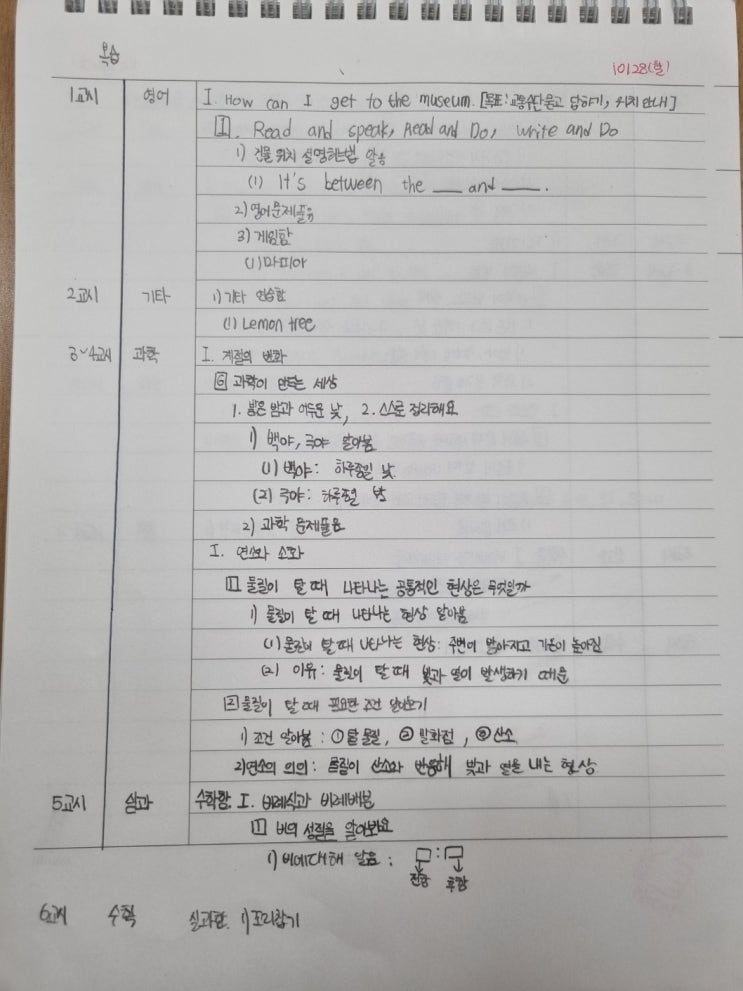 복습
10128(월)
1교시 영어 I. How can I get to the museum. [목표: 교통수단 묻고 답하기, 위치 안내]
1. Read and speak, Read and Do, write and Do
1) 건물 위치 설명하는법 알음
(1) It's between the ___ and ___.
2) 영어문제풀음
3) 게임함
(1) 마피아
2교시 기타 1) 기타 연습함
(1) Lemon tree
3~4교시 과학 I. 계절의 변화
6 과학이 만드는 세상
1. 밝은 밤과 어두운 낮, 2. 스스로 정리해요
1) 백야, 극야 알아봄
(1) 백야: 하루종일 낮
(2) 극야: 하루종일 밤
2) 과학 문제풀음
I. 연소와 소화
1 물질이 탈 때 나타나는 공통적인 현상은 무엇일까
1) 물질이 탈 때 나타나는 현상 알아봄
(1) 물질이 탈 때 나타나는 현상: 주변이 밝아지고 기온이 높아짐
(2) 이유: 물질이 탈 때 빛과 열이 발생하기 때문
2 물질이 탈 때 필요한 조건 알아보기
1) 조건 알아봄: ① 탈 물질, ② 발화점, ③ 산소
2) 연소의 의의: 물질이 산소와 반응해 빛과 열을 내는 현상
5교시 실과 수학함. I. 비례식과 비례배분
1 비의 성질을 알아봐요
1) 비에대해 알음: □:□
전항 후항
6교시 수학 실과함. 1) 조리합기